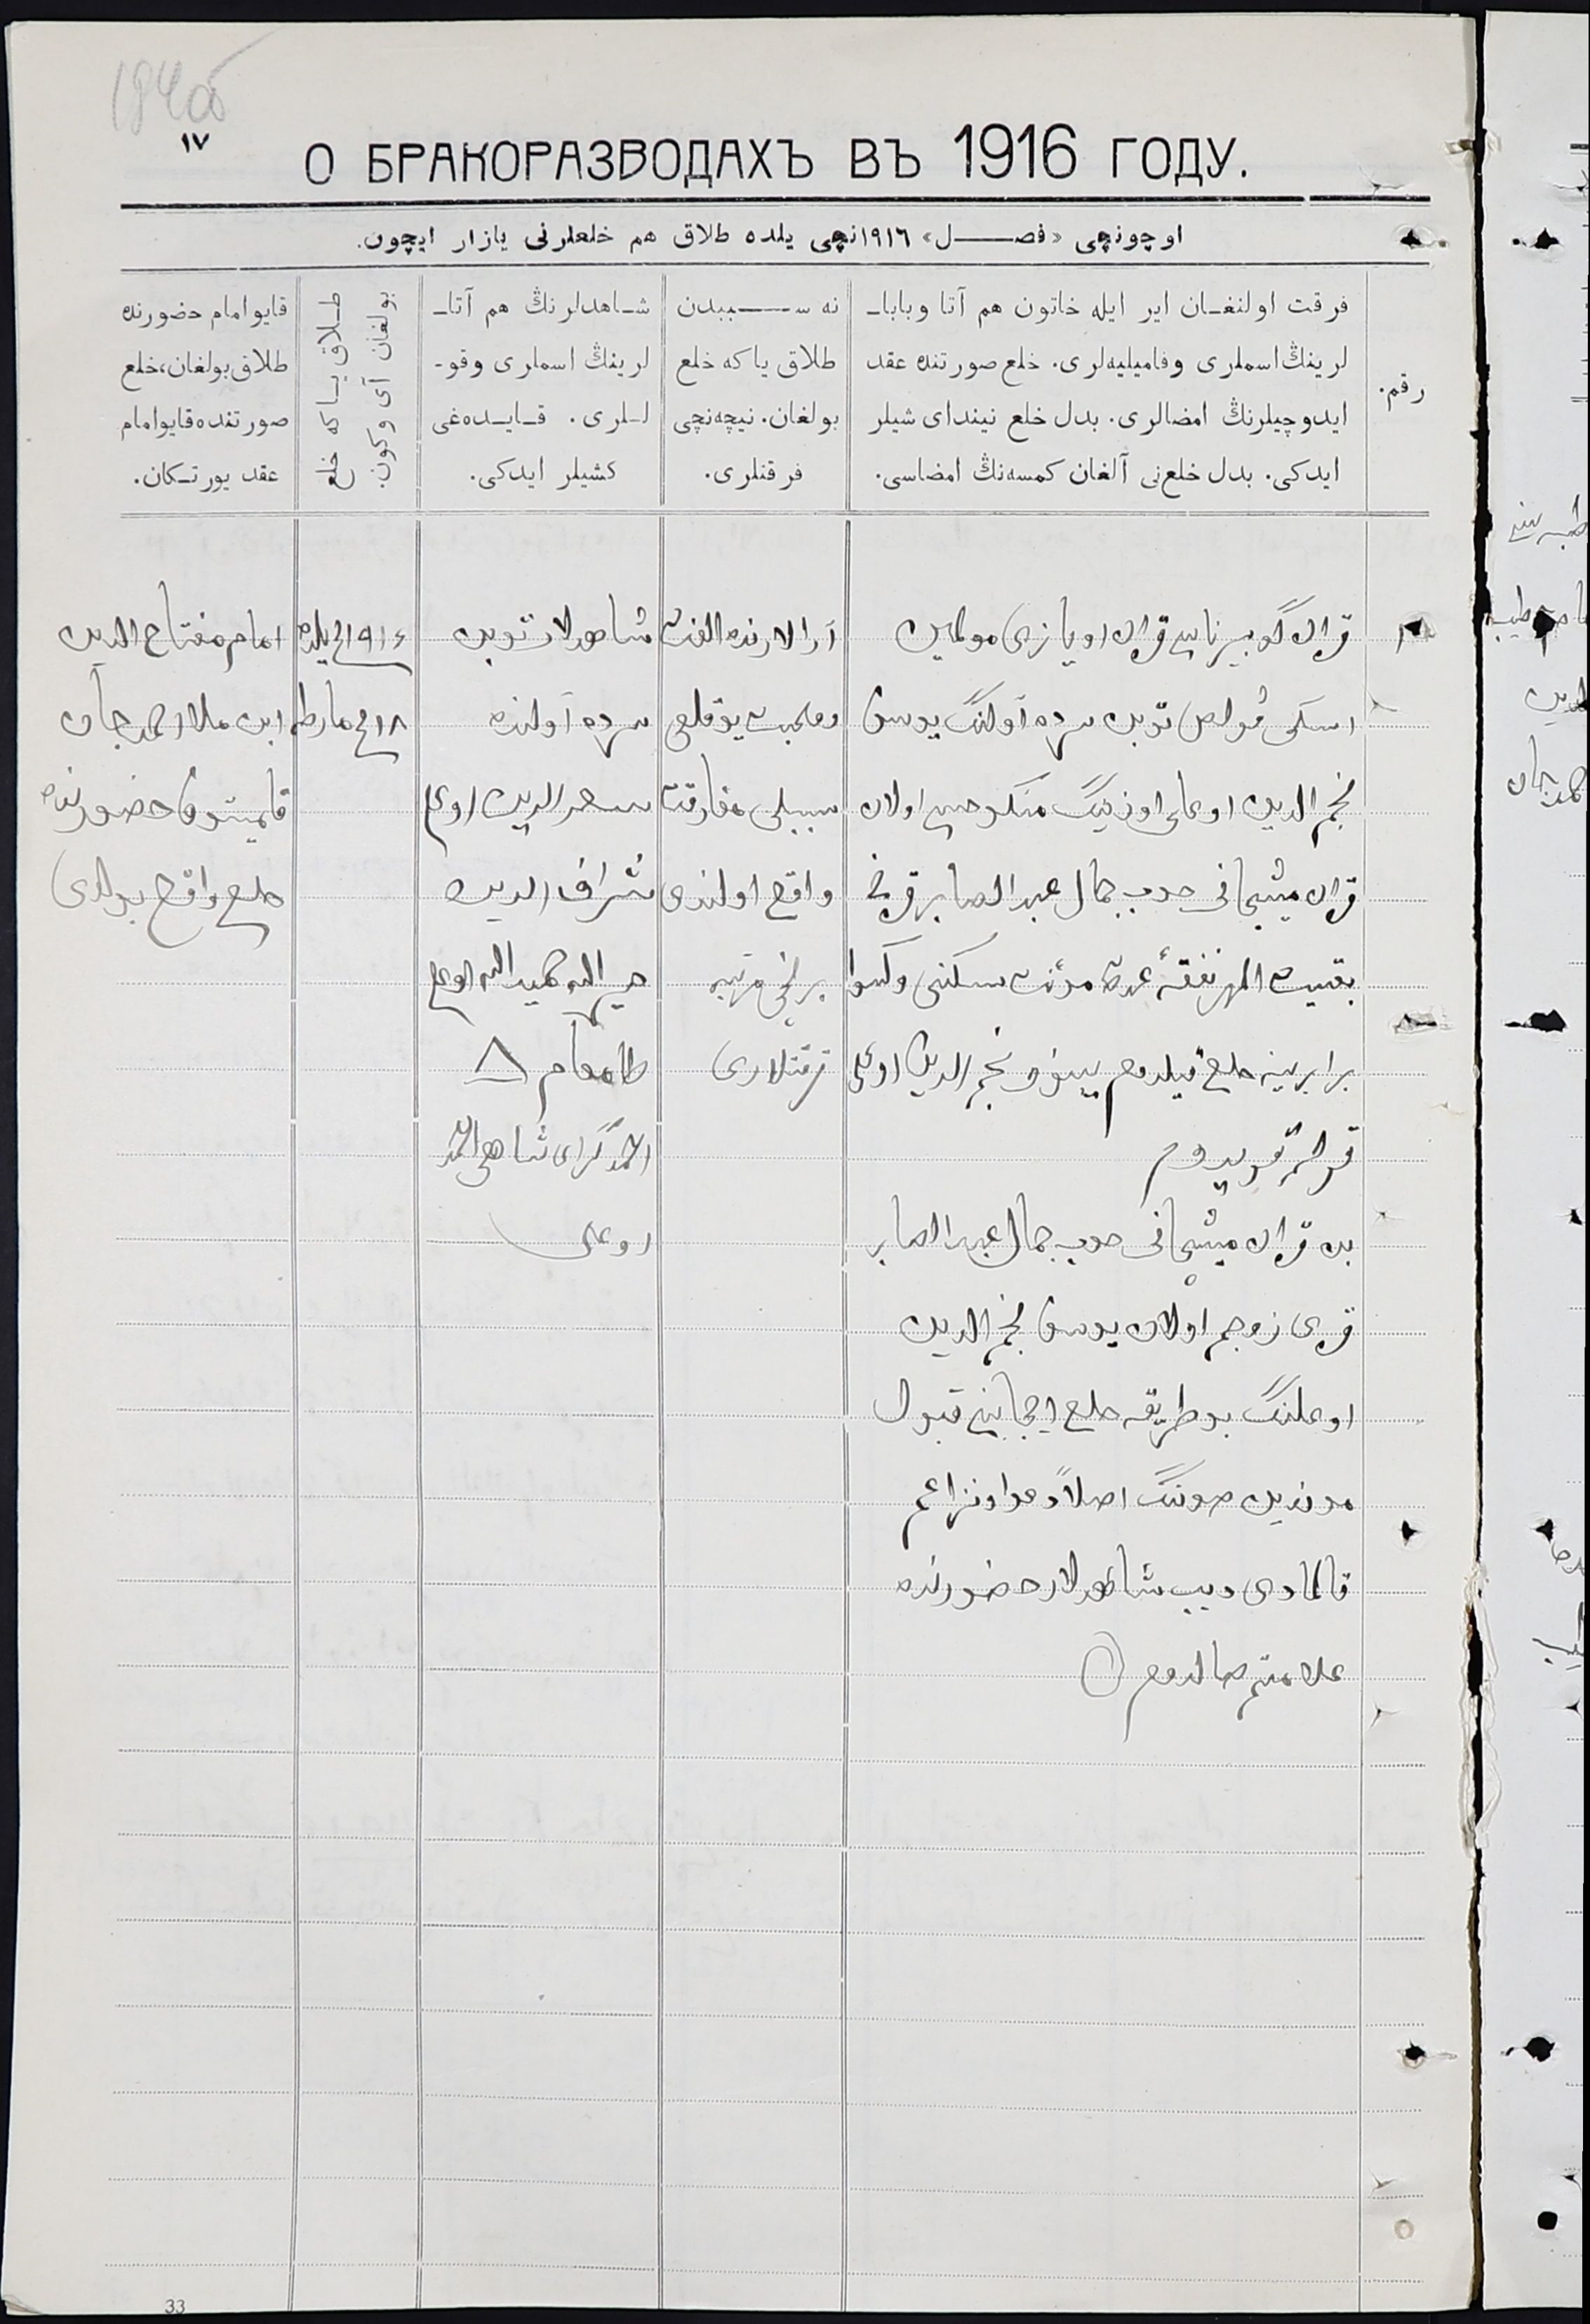 184об
١٧
О БРАКОРАЗВОДАХЪ ВЪ 1916 ГОДУ.
اوچونچی «فصـــــل» ١٩١٦نچی یلده طلاق هم خلعلرنی یازار ایچون.
رقم.
فرقت اولنغـان ایر ایله خاتون هم آتا وباباـ
لرینڭ اسملری وفامیلیه‌لری. خلع صورتنده عقد
ایدوچیلرنڭ امضالری. بدل خلع نیندای شیلر
ایدکی. بدل خلع‌نی آلغان کمسه‌نڭ امضاسی.
نه ســـــببدن
طلاق یا که خلع
بولغان. نیچه‌نچی
فرقتلری.
شـاهدلرنڭ هم آتاـ
لرینڭ اسملری وقوـ
لـلری. قـایـده‌غی
کشیلر ایدکی.
طـلاق یـا که خلع
بولغان آی وکون.
قایو امام حضورنده
طلاق بولغان، خلع
صورتنده قایو امام
عقد یورتـکان.
١
قزان گوبیرناسی قزان اویازی
اسکی توبن آولنڭ یوسف
نجم الدین اوغلی اوزنینگ منکوحه‌سی اولان
قزان میشچانی جمال عبد الصابر قزینی
بقیت المهر نفقهٔ عدت مؤنت سکنی
برابرینه خلع قیلدم یوسف نجم الدین اوغلی
قولم قویدوم
بن قزان میشچانی جمال عبد الصابر
قزی زوجم اولان یوسف نجم الدین
اوغلنڭ بو طریقه خلع ایجابنی قبول
موندین صونگ اصلاً دعوا ونزاعم
قالمادی دیب شاهدلار حضورنده
علامتم صالدوم
آرالارنده الفت
ومحبت یوقلغی
سببلی مفارقت
واقع اولندی
برنچی مرتبه
فرقتلاری
شاهدلار توبن
آولنده
اوغلی
شراف الدین
حمید الله اوغلی
طامغام
احمد گرای شاهی احمد
اوغلی
١٩١٦نچی یلده
١٨نچی مارطه
امام مفتاح الدین
ابن ملا احمد جان
حضورنده
خلع واقع بولدی
33